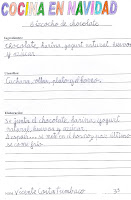 COCINA EN NAVIDAD
Bizcocho de chocolate
Ingredientes:
Chocolate, harina, yogurt natural, huevos
y azúcar.
Utensilios:
Cuchara, olla, plato y
Elaboración:
Se junta el chocolate, harina, yogurt
natural, huevos y azúcar.
se mete en el horno, y
se come frío.
Vicente Costa
3º